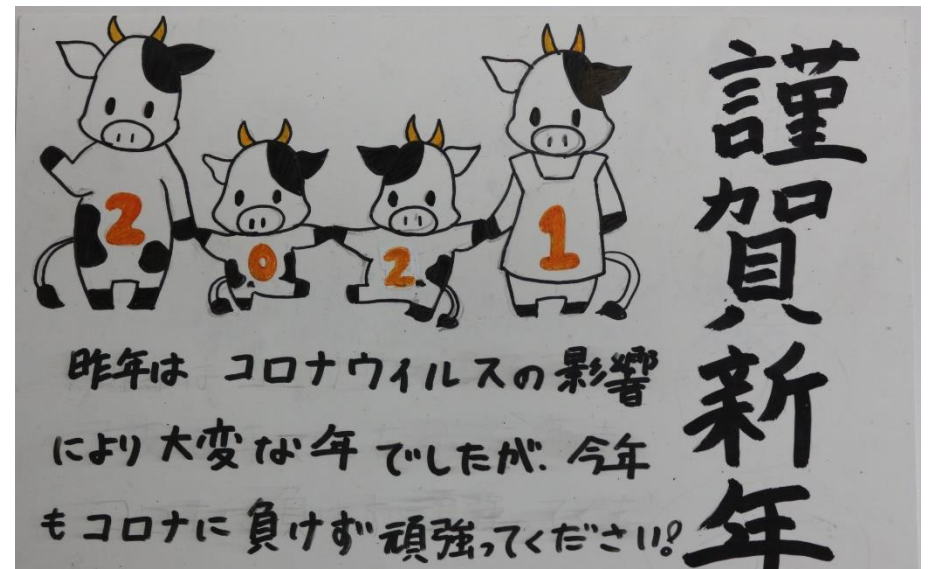 謹賀新年
2 0 2 1
昨年は コロナウイルスの影響
により大変な年でしたが、今年
もコロナに負けず頑強ってください!